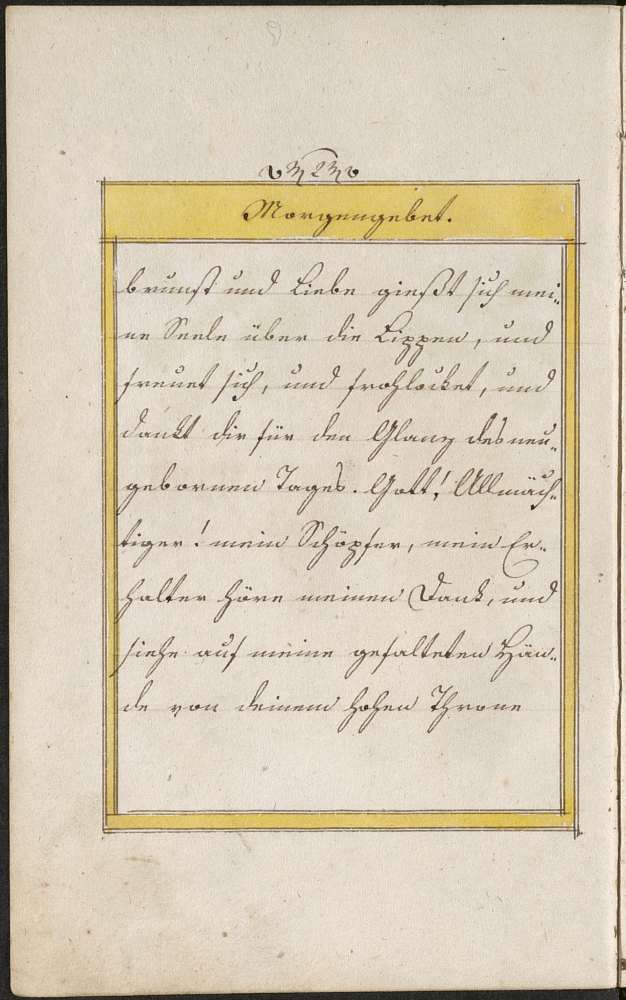 Morgengebet.
brunst und Liebe gießt sich mei„
ne Seele über die Lippen, und
freuet sich, und frohlocket, und
dankt dir für den Glanz des neu„
gebornen Tages. Gott! Allmäch„
tiger! mein Schöpfer, mein Er„
halter höre meinen Dank, und
siehe auf meine gefalteten Hän„
de von deinem hohen Throne